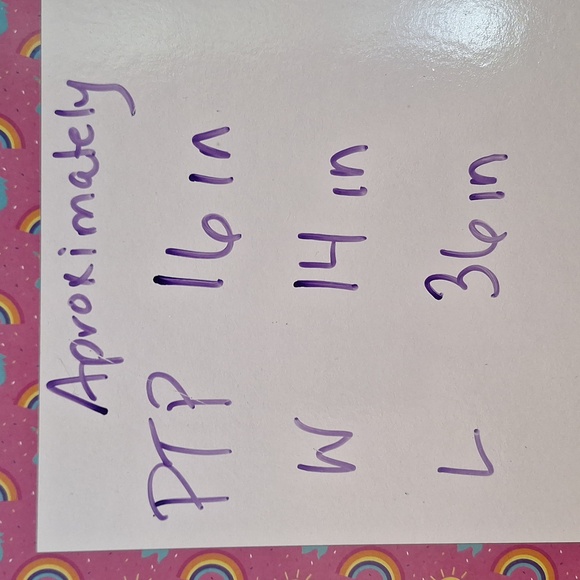 Aproximately
PTP 16 in
W 14 in
L 36 in